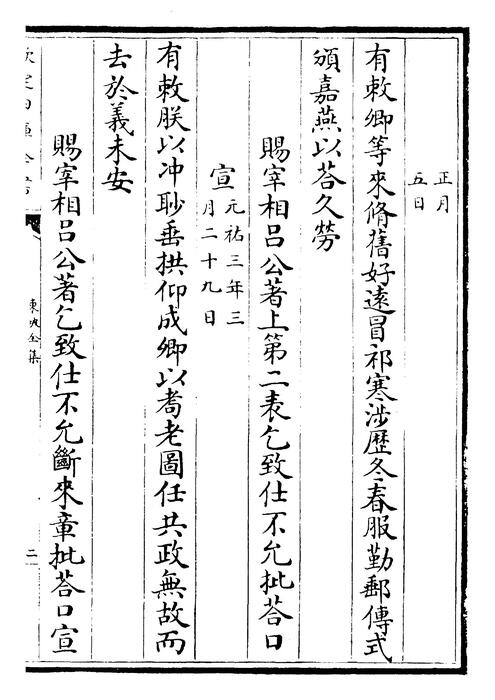 正月
五日
有敕卿等來脩舊好遠冒祁寒涉歷冬春服勤郵傳式
頒嘉燕以荅久勞
賜宰相吕公著上第二表乞致仕不允批荅口
宣元祐三年三
月二十九日
有敕朕以冲眇垂拱仰成卿以耇老圖任共政無故而
去於義未安
賜宰相吕公著乞致仕不允斷來章批荅口宣
東坡全集
二